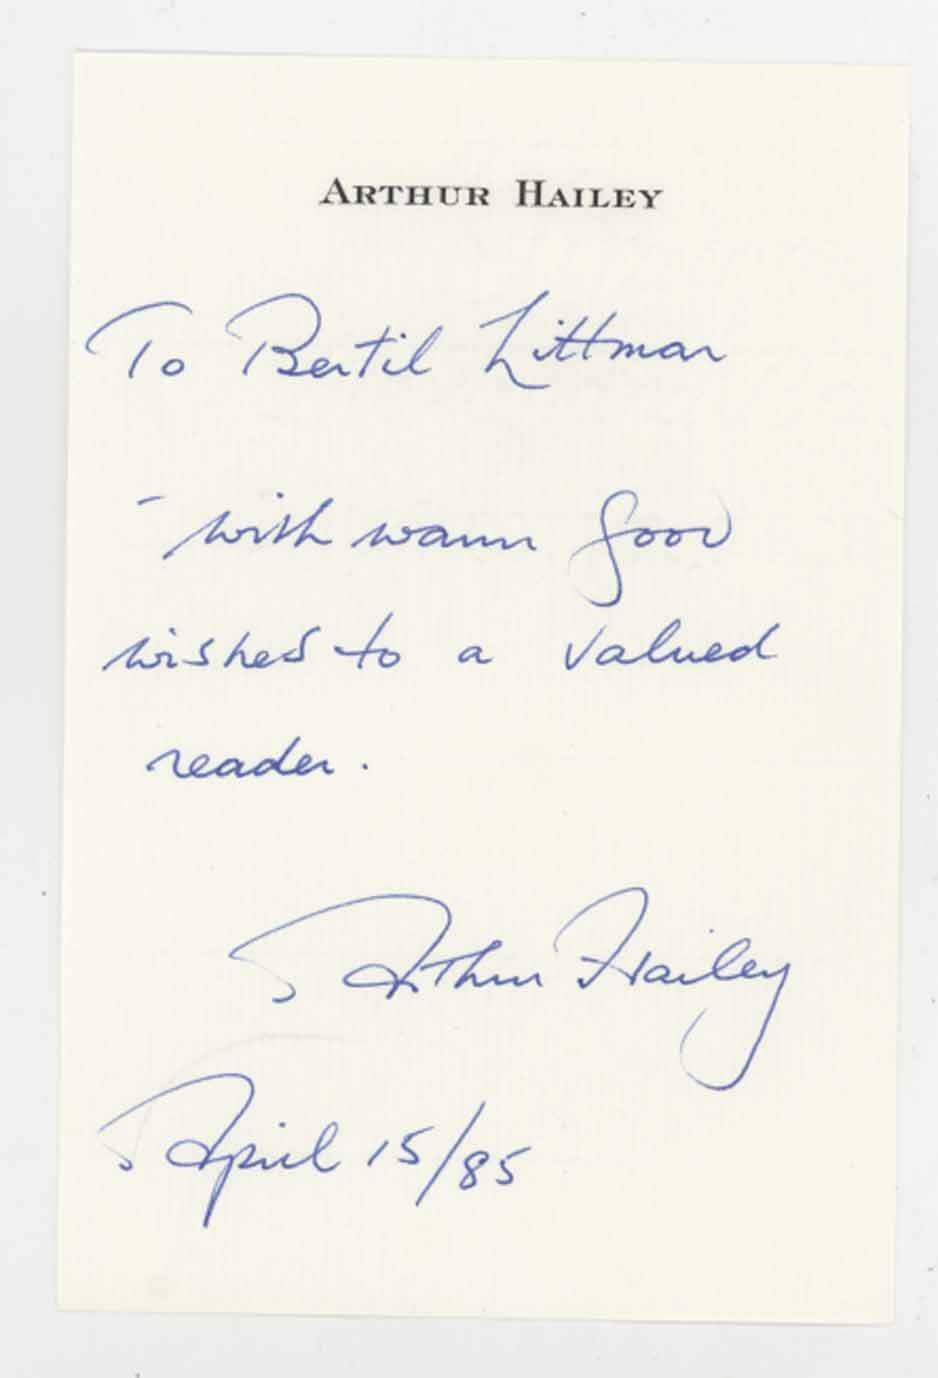 ARTHUR HAILEY
To Bertil Littman
- with warm good
wishes to a valued
reader.
Arthur Hailey
April 15/85